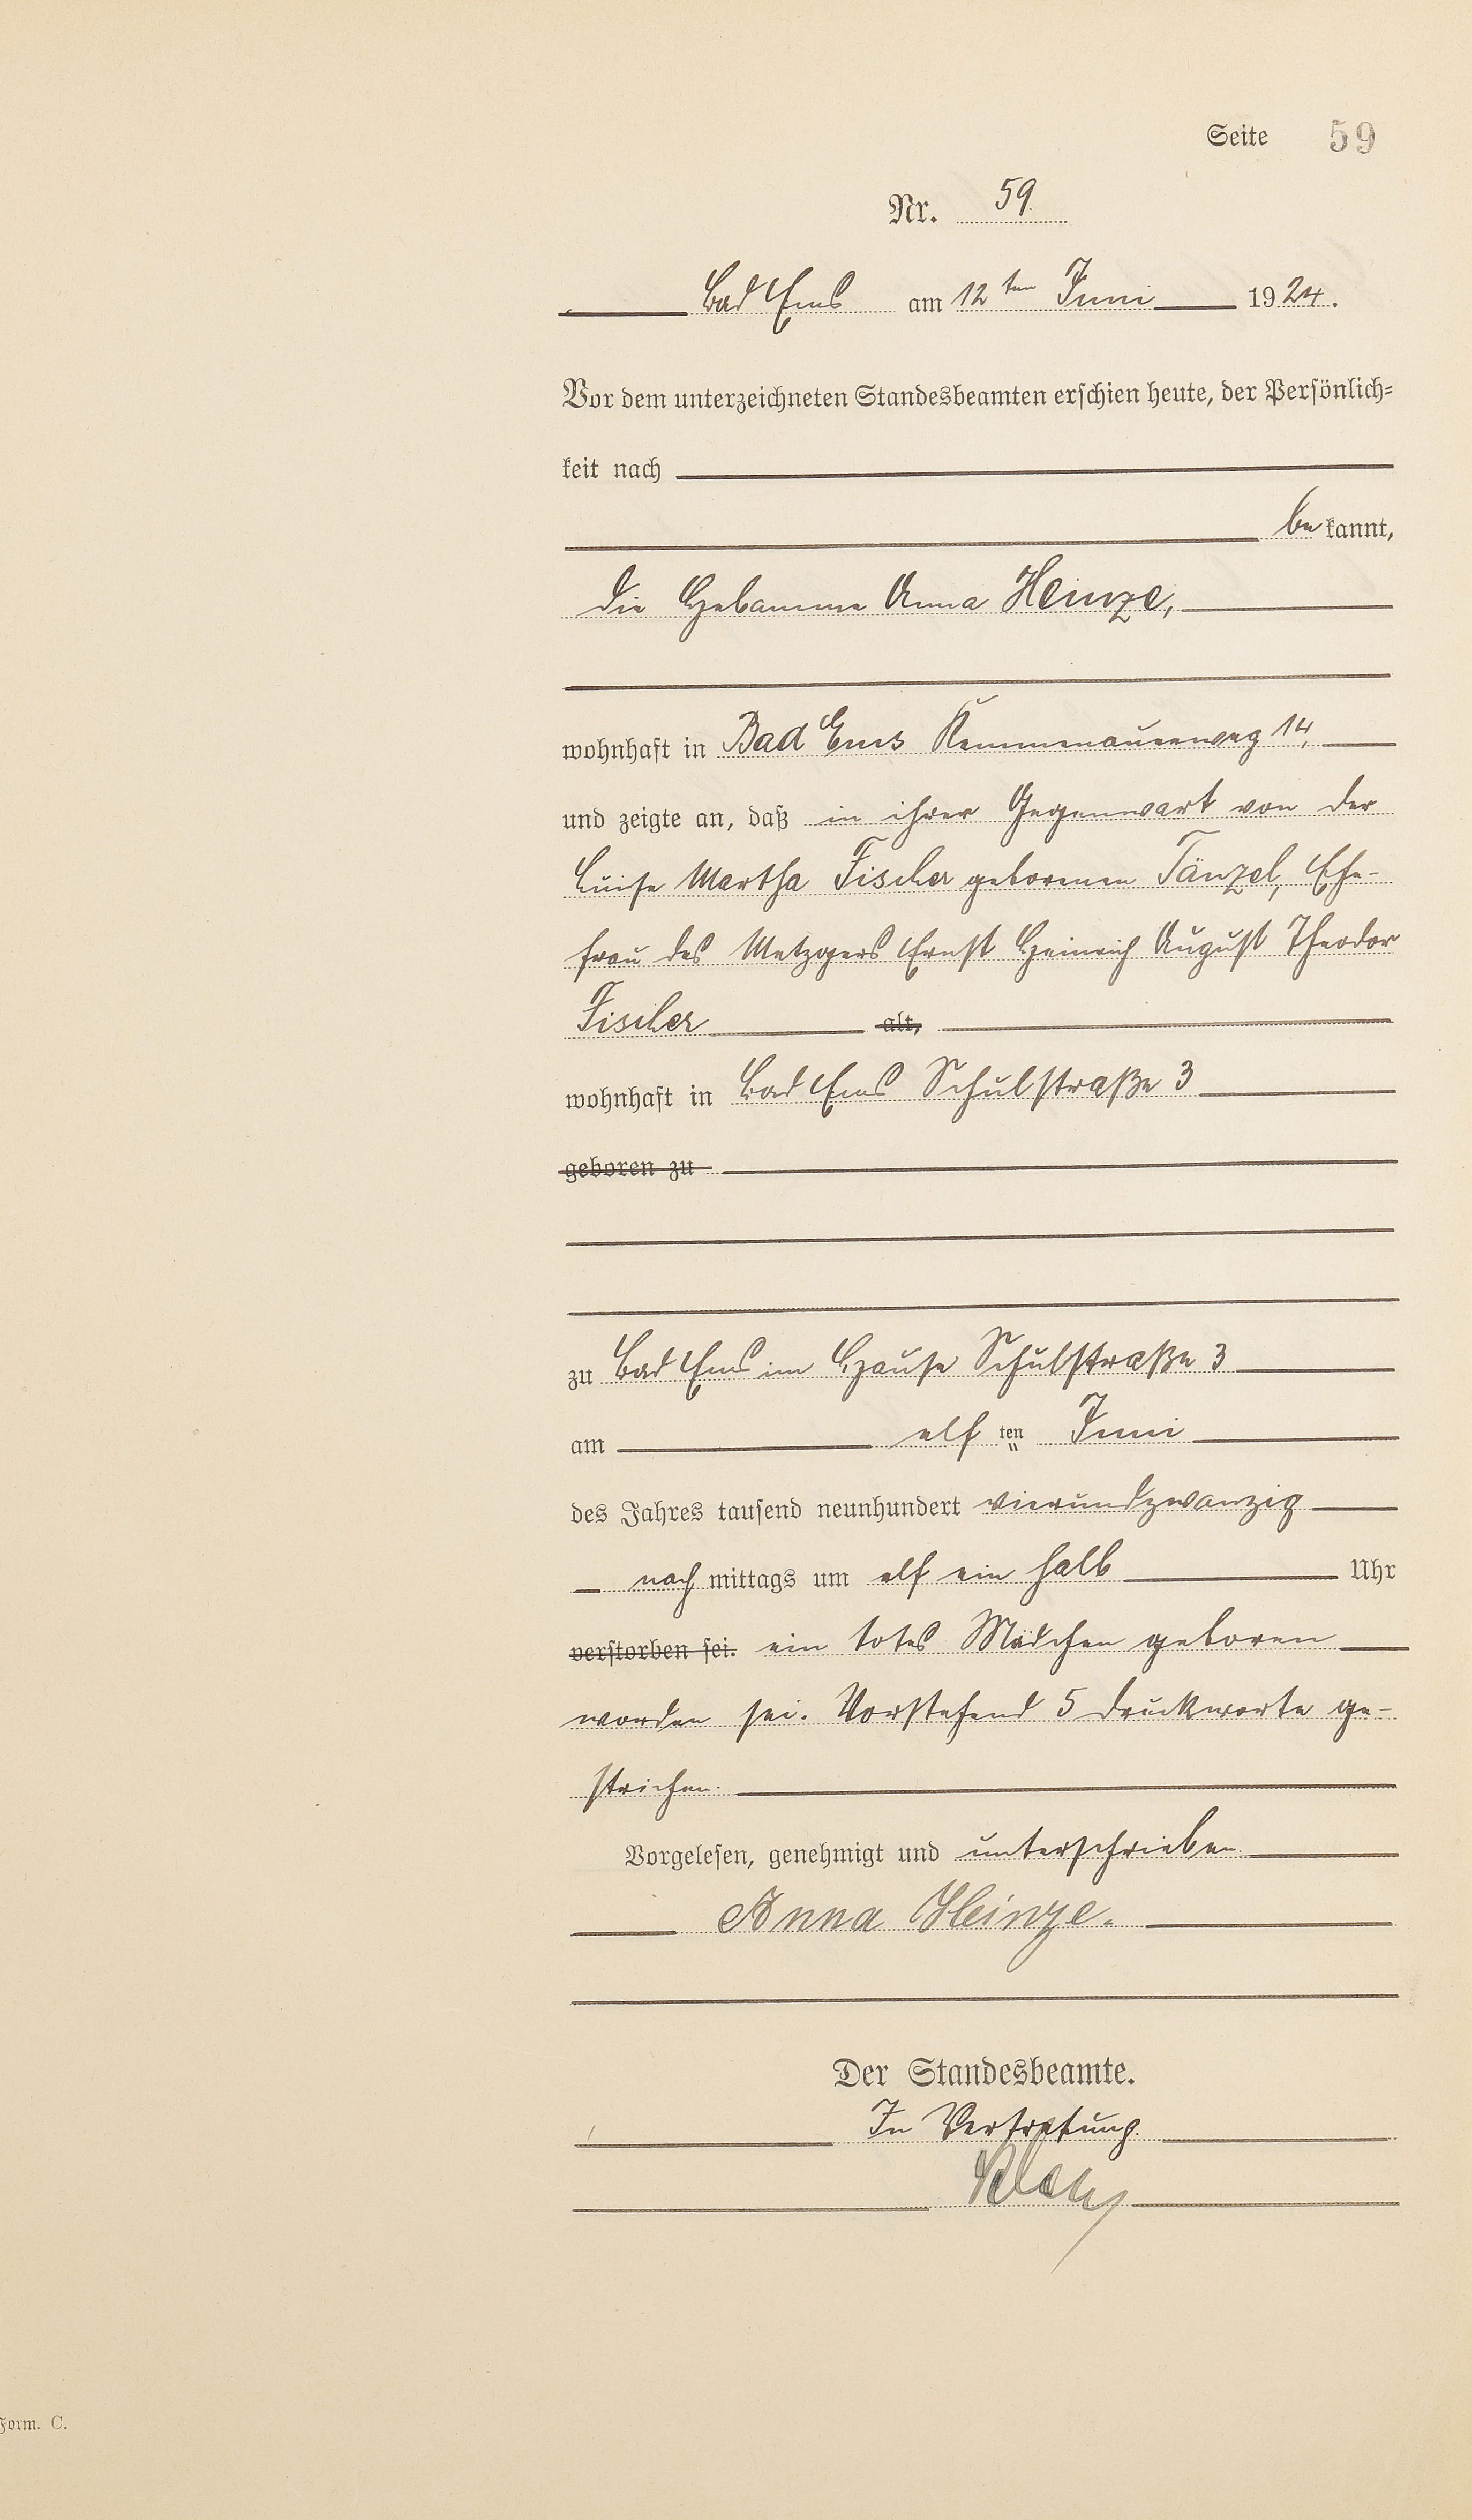 Seite 59
Nr. 59
Bad Ems am 12ten Juni 1924.
Vor dem unterzeichneten Standesbeamten erschien heute, der Persönlich=
keit nach
bekannt,
die Hebamme Anna Heinze,
wohnhaft in Bad Ems Kemmenauerweg 14,
und zeigte an, daß in ihrer Gegenwart von der
Luise Martha Fischer geborenen Tänzel, Ehe-
frau des Metzgers Ernst Heinrich August Theodor
Fischer alt,
wohnhaft in Bad Ems Schulstraße 3
geboren zu
zu Bad Ems im Hause Schulstraße 3
am elften Juni
des Jahres tausend neunhundert vierundzwanzig
nachmittags um elf ein halb Uhr
verstorben sei. ein totes Mädchen geboren
worden sei. Vorstehend 5 Druckworte ge-
strichen.
Vorgelesen, genehmigt und unterschrieben.
Anna Heinze.
Der Standesbeamte.
In Vertretung.
Form. C.